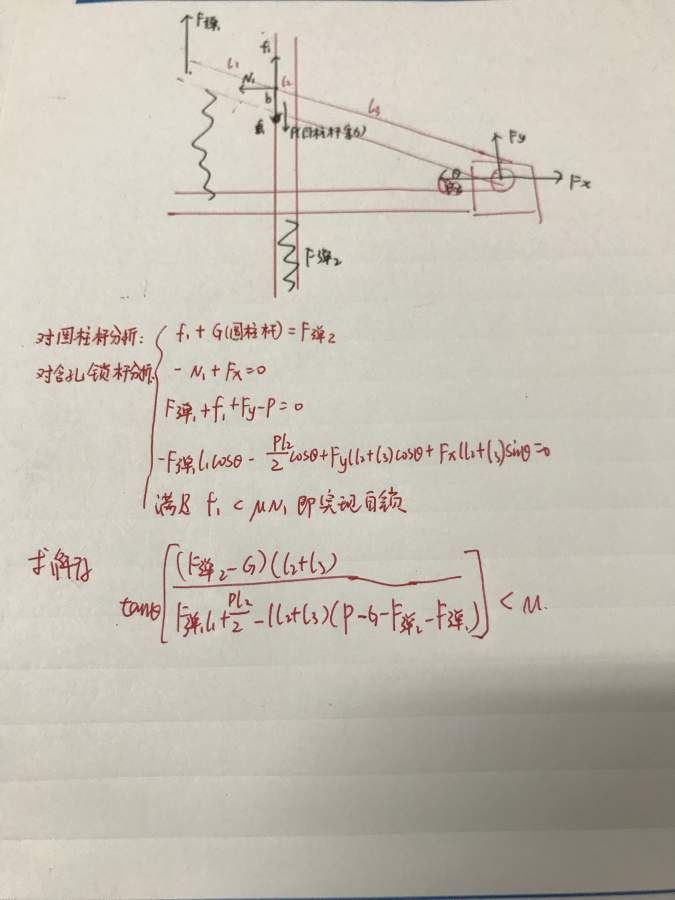 F弹₁
f₁
l₁
N₁
l₂
b
P(圆柱杆重力)
l₃
Fy
θ
Fx
F弹₂
对圆柱杆分析: f₁ + G(圆柱杆) = F弹₂
对含孔锁杆分析: - N₁ + Fx = 0
F弹₁ + f₁ + Fy - P = 0
-F弹₁l₁cosθ - Pl₂/2 cosθ + Fy(l₂+l₃)cosθ + Fx(l₂+l₃)sinθ = 0
满足 f₁ < μN₁ 即实现自锁
求解得
tanθ[(F弹₂-G)(l₂+l₃) / (F弹₁l₁ + Pl₂/2 - (l₂+l₃)(P-G-F弹₂-F弹₁))] < μ.